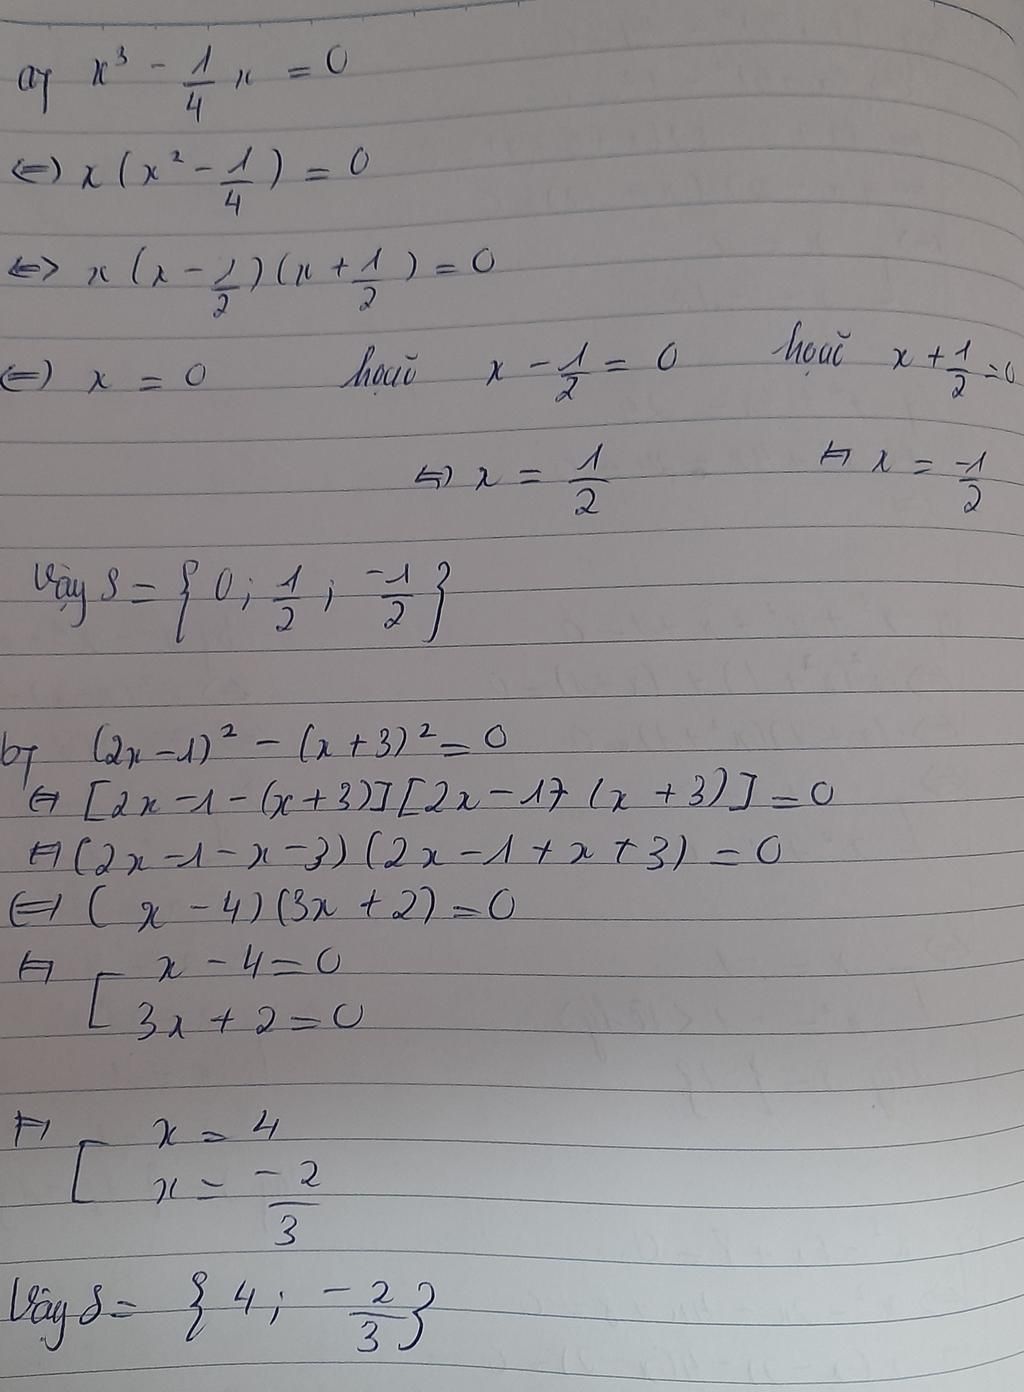 a) x³ - 1/4 x = 0
<=> x(x² - 1/4) = 0
<=> x(x - 1/2)(x + 1/2) = 0
<=> x = 0 hoặc x - 1/2 = 0 hoặc x + 1/2 = 0
<=> x = 1/2 <=> x = -1/2
Vậy S = {0; 1/2; -1/2}
b) (2x - 1)² - (x + 3)² = 0
<=> [2x - 1 - (x + 3)][2x - 1 + (x + 3)] = 0
<=> (2x - 1 - x - 3)(2x - 1 + x + 3) = 0
<=> (x - 4)(3x + 2) = 0
<=> [ x - 4 = 0
3x + 2 = 0
<=> [ x = 4
x = -2/3
Vậy S = {4; -2/3}